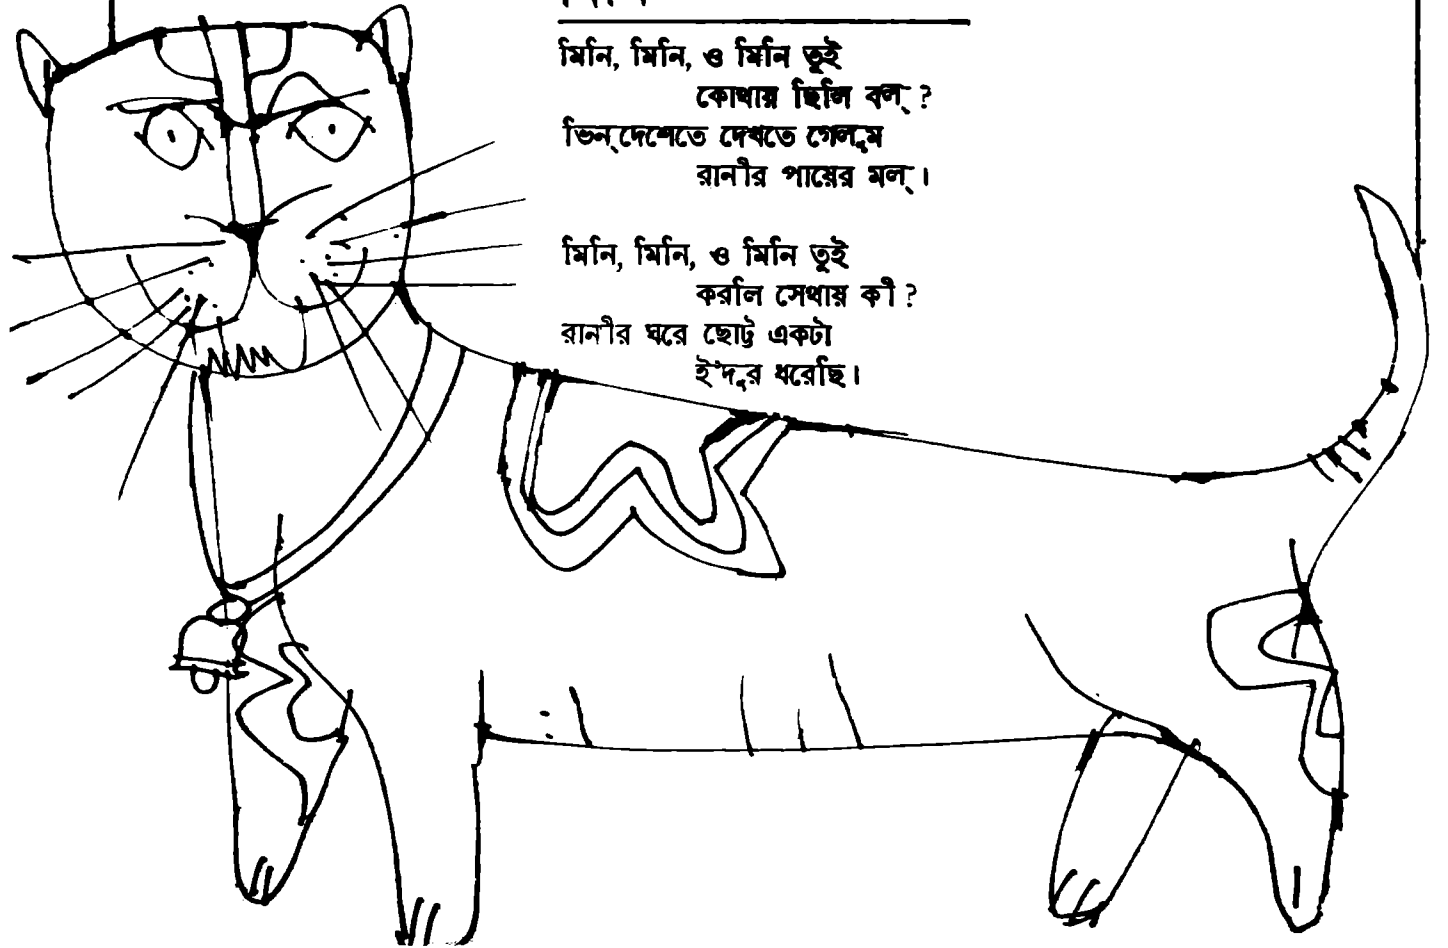 মিনি, মিনি, ও মিনি তুই
কোথায় ছিলি বল্ ?
ভিন্‌দেশেতে দেখতে গেলুম
রানীর পায়ের মল্ ।
মিনি, মিনি, ও মিনি তুই
করলি সেথায় কী ?
রানীর ঘরে ছোট্ট একটা
ইঁদুর ধরেছি ।